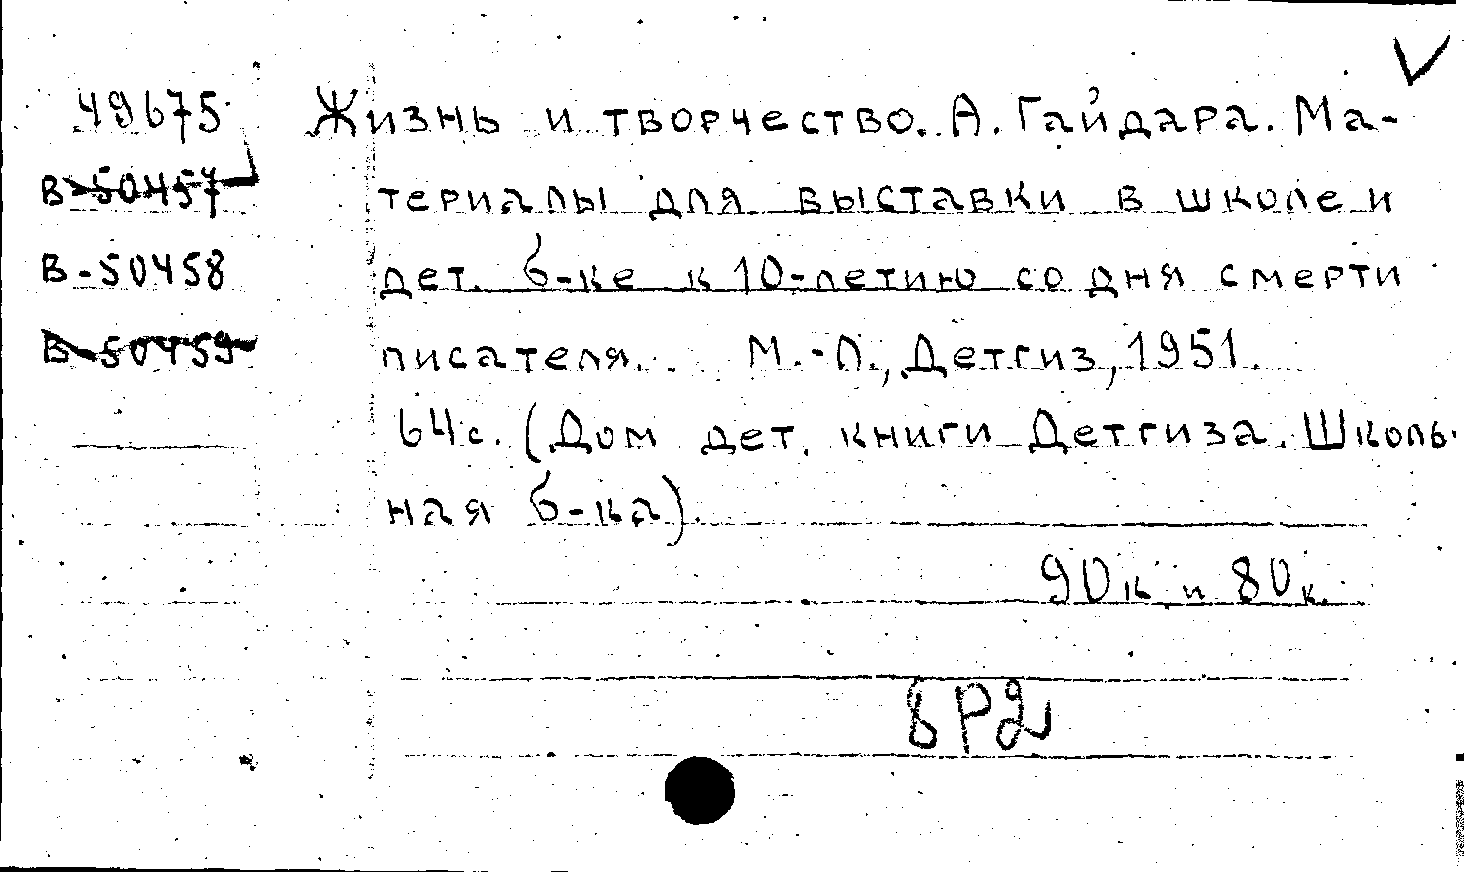 49675 Жизнь и творчество А. Гайдара. Ма-
В-50457 териалы для выставки в школе и
В-50458 дет. б-ке к 10-летию со дня смерти
В-50459 писателя. М.-Л., Детгиз, 1951.
64с. (Дом дет. книги Детгиза. Школь-
ная б-ка).
90к. и 80к.
8Р2